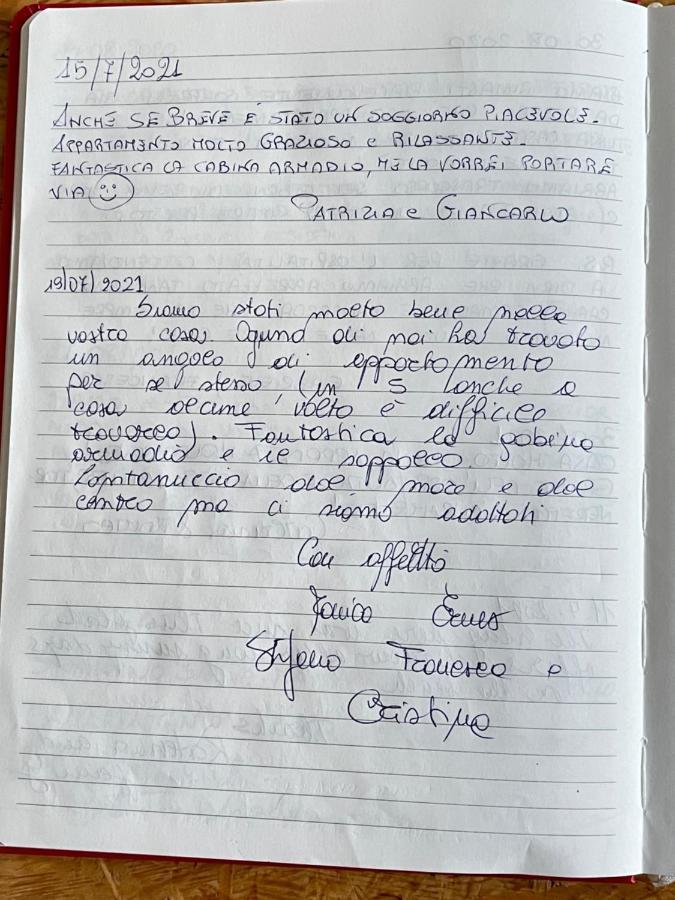 15/7/2021
ANCHE SE BREVE È STATO UN SOGGIORNO PIACEVOLE.
APPARTAMENTO MOLTO GRAZIOSO e RILASSANTE.
FANTASTICA LA CABINA ARMADIO, ME LA VORREI PORTARE
VIA
PATRIZIA e GIANCARLO
19/07/2021
Siamo stati molto bene nella
vostra casa. Ognuno di noi ha trovato
un angolo di appartamento
per se stesso (in 5 anche a
casa a volte è difficile
trovarlo). Fantastica la gabina
armadio e il soppalco.
Lontanuccio dal mare e dal
centro ma ci siamo adattati
Con affetto
Stefano Francesco e
Cristina